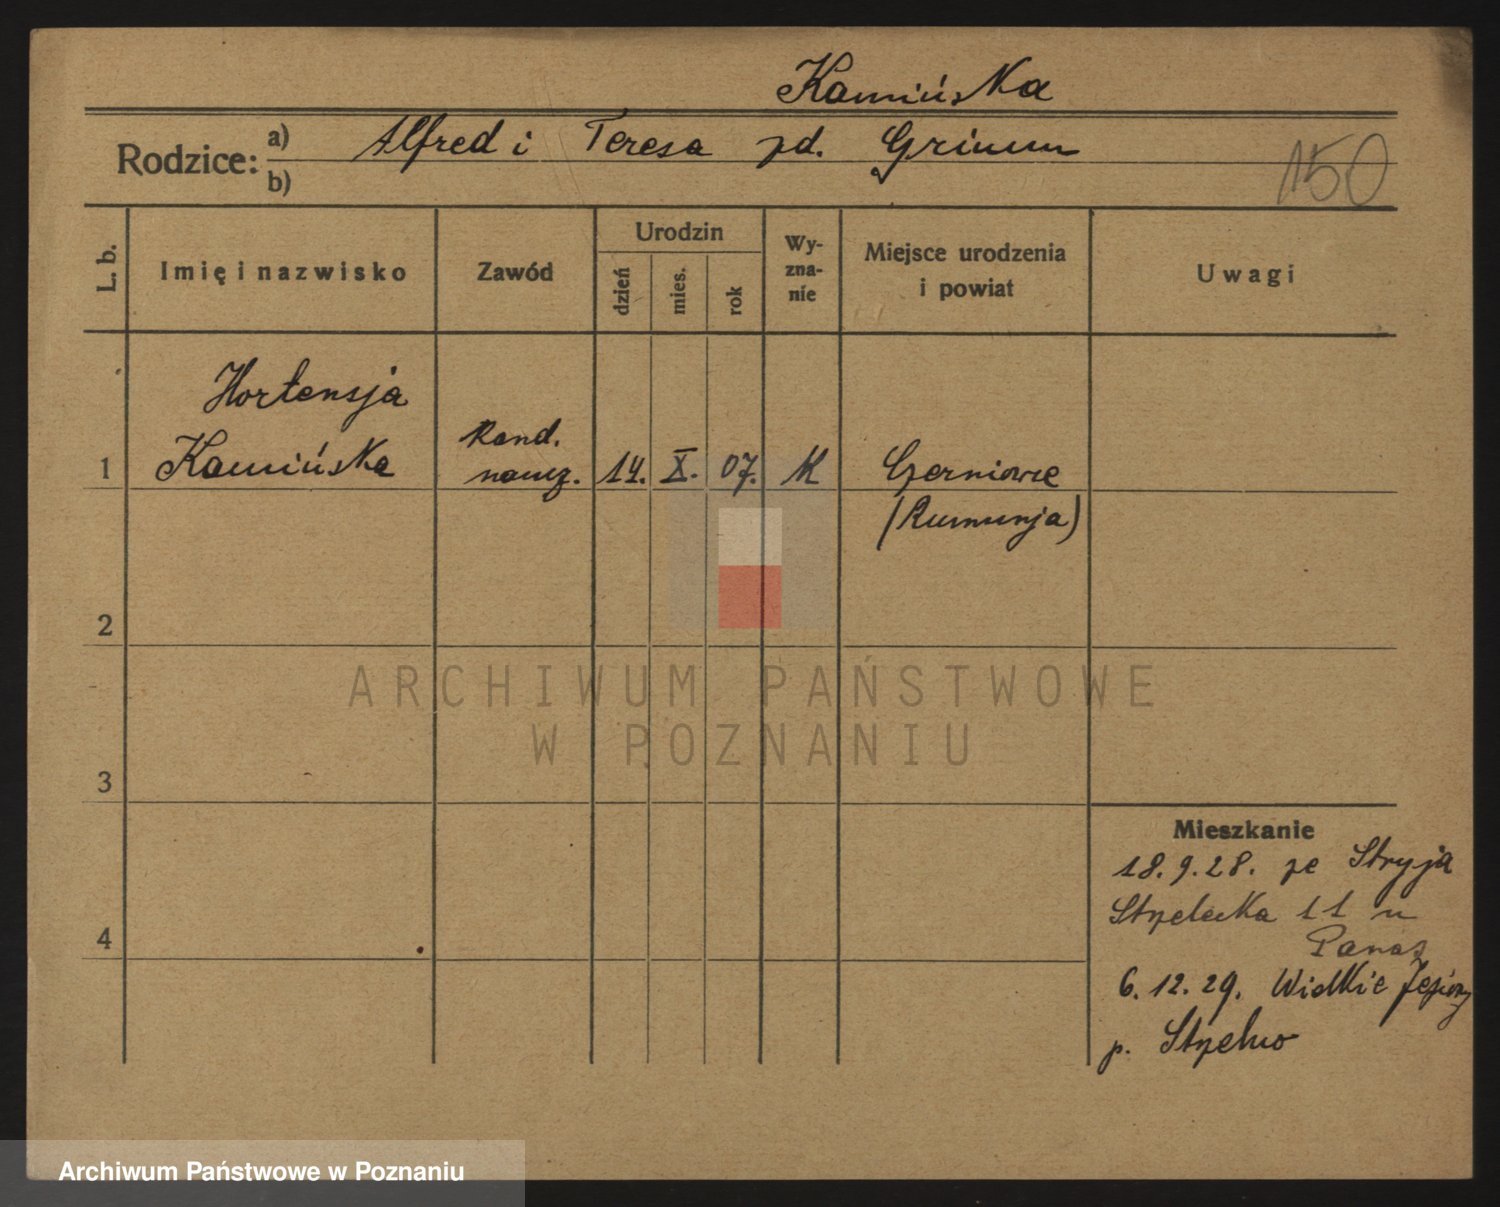 Kamińska
Rodzice: a) Alfred i Teresa zd. Grimm
b)
150
L. b.
Imię i nazwisko
Zawód
Urodzin
dzień
mies.
rok
Wy-
zna-
nie
Miejsce urodzenia
i powiat
Uwagi
Hortensja
1 Kamińska
Kand.
naucz.
14. X. 07. K
Czerniowce
(Rumunja)
2
3
4
ARCHIWUM PAŃSTWOWE
W POZNANIU
Mieszkanie
18.9.28. ze Stryja
Strzelecka 11 u
Panas
6.12.29. Wielkie Jeziory
p. Strzelno
Archiwum Państwowe w Poznaniu